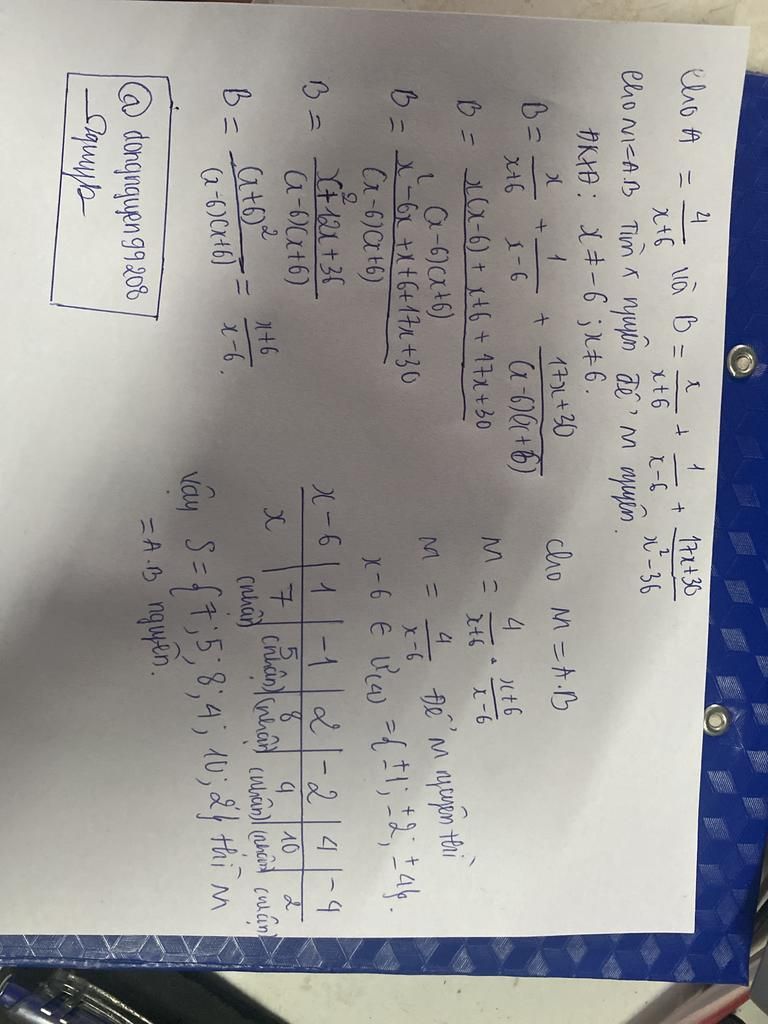 Cho A = 4/(x+6) và B = x/(x+6) + 1/(x-6) + (17x+30)/(x²-36)
Cho M=A.B Tìm x nguyên để M nguyên.
ĐKXĐ: x ≠ -6 ; x ≠ 6.
B = x/(x+6) + 1/(x-6) + (17x+30)/((x-6)(x+6))
B = (x(x-6) + x+6 + 17x+30)/((x-6)(x+6))
B = (x²-6x+x+6+17x+30)/((x-6)(x+6))
B = (x²+12x+36)/((x-6)(x+6))
B = (x+6)²/((x-6)(x+6)) = (x+6)/(x-6).
@dongnguyen99208
Cho M = A.B
M = 4/(x+6) . (x+6)/(x-6)
M = 4/(x-6) Để M nguyên thì
x-6 ∈ Ư(4) = {±1; ±2; ±4}.
x-6 | 1 | -1 | 2 | -2 | 4 | -4
x | 7 (nhận) | 5 (nhận) | 8 (nhận) | 4 (nhận) | 10 (nhận) | 2 (nhận)
Vậy S = {7; 5; 8; 4; 10; 2} thì M
= A.B nguyên.